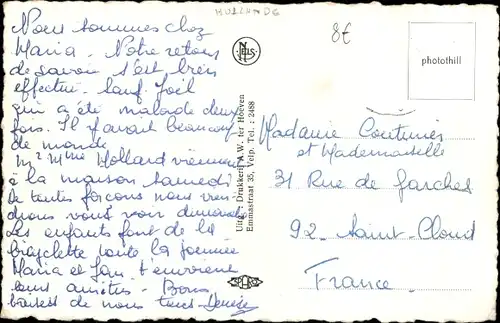 HOLLANDE
8€
Nous sommes chez
Maria. Notre retour
de Savoie s'est bien
effectué. Sauf Joël
qui a été malade deux
fois. Il y avait beaucoup
de monde.
Mr Mme Holland viennent
à la maison samedi
de toutes façons nous vien-
drons vous voir dimanche
Les enfants font de la
bicyclette toute la journée
Maria et Jan t'envoient
leurs amitiés. Bons
baisers de nous tous Denise
NELS
Uitg. Drukkerij A.W. ter Hoeven
Emmastraat 35, Velp. Tel.: 2488
SPARO
photothill
Madame Couturier
et Mademoiselle
31 Rue de Garches
92 - Saint-Cloud
France